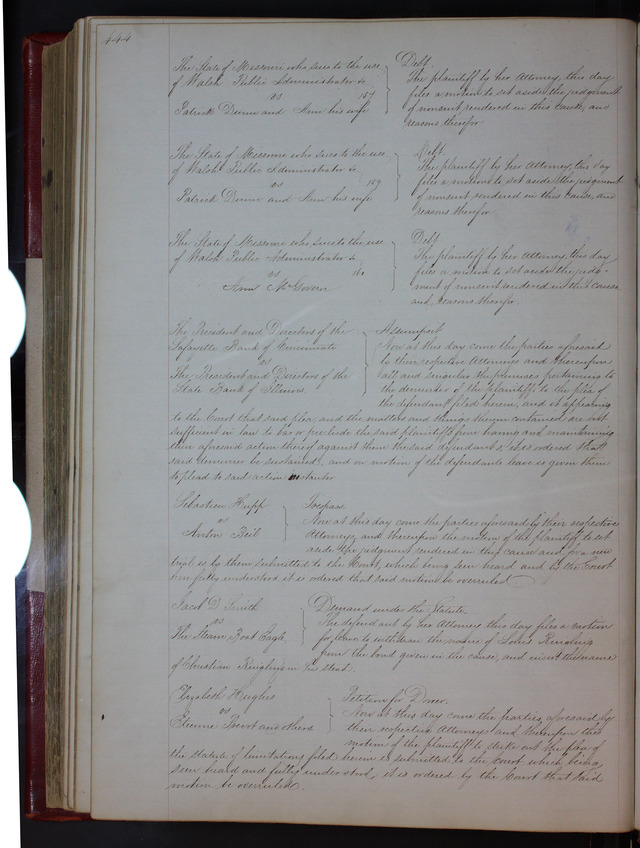 444
The State of Missouri who sues to the use
of Walsh Public Administrator &c
vs 157
Patrick Dunn and Ann his wife
Debt.
The plaintiff by her Attorney, this day
files a motion to set aside the judgment
of nonsuit rendered in this cause, and
reasons therefor
The State of Missouri who sues to the use
of Walsh Public Administrator &c
vs 159
Patrick Dunn and Ann his wife
Debt
The plaintiff by her Attorney, this day
files a motion to set aside the judgment
of nonsuit rendered in this cause, and
reasons therefor
The State of Missouri who sues to the use
of Walsh Public Administrator &c
vs 160
Ann McGovern
Debt
The plaintiff by her Attorney, this day
files a motion to set aside the judg-
ment of nonsuit rendered in this cause
and reasons therefor.
The President and Directors of the
Lafayette Bank of Cincinnati
vs
The President and Directors of the
State Bank of Illinois
Assumpsit
Now at this day come the parties aforesaid
by their respective Attornies and thereupon
all and singular the premises pertaining to
the demurrer of the plaintiffs to the plea of
the defendants filed herein, and it appearing
to the Court that said plea and the matters and things therein contained are not
sufficient in law to bar or preclude the said plaintiffs from having and maintaining
their aforesaid action thereof against them the said defendants, it is ordered that
said demurrer be sustained, and on motion of the defendants leave is given them
to plead to said action
Sebastien Hupp
vs
Anton Beil
Trespass
Now at this day come the parties aforesaid by their respective
Attorneys and thereupon the motion of the plaintiff to set
aside the judgment rendered in this cause and for a new
trial is by them submitted to the Court, which being seen heard and by the Court
fully understood it is ordered that said motion be overruled
Jacob D Smith
vs
The Steam Boat Eagle
Demand under the Statute
The defendant by her Attorney this day files a motion
for leave to withdraw the name of Louis Ringling
from the bond given in the cause, and insert the name
of Christian Ringling in his stead.
Elizabeth Hughes
vs
Etienne Provot and others
Petition for Dower.
Now at this day come the parties aforesaid by
their respective Attorneys and thereupon the
motion of the plaintiff to strike out the plea of
the statute of limitations filed herein is submitted to the Court which being
seen heard and fully understood, it is ordered by the Court that said
motion be overruled.